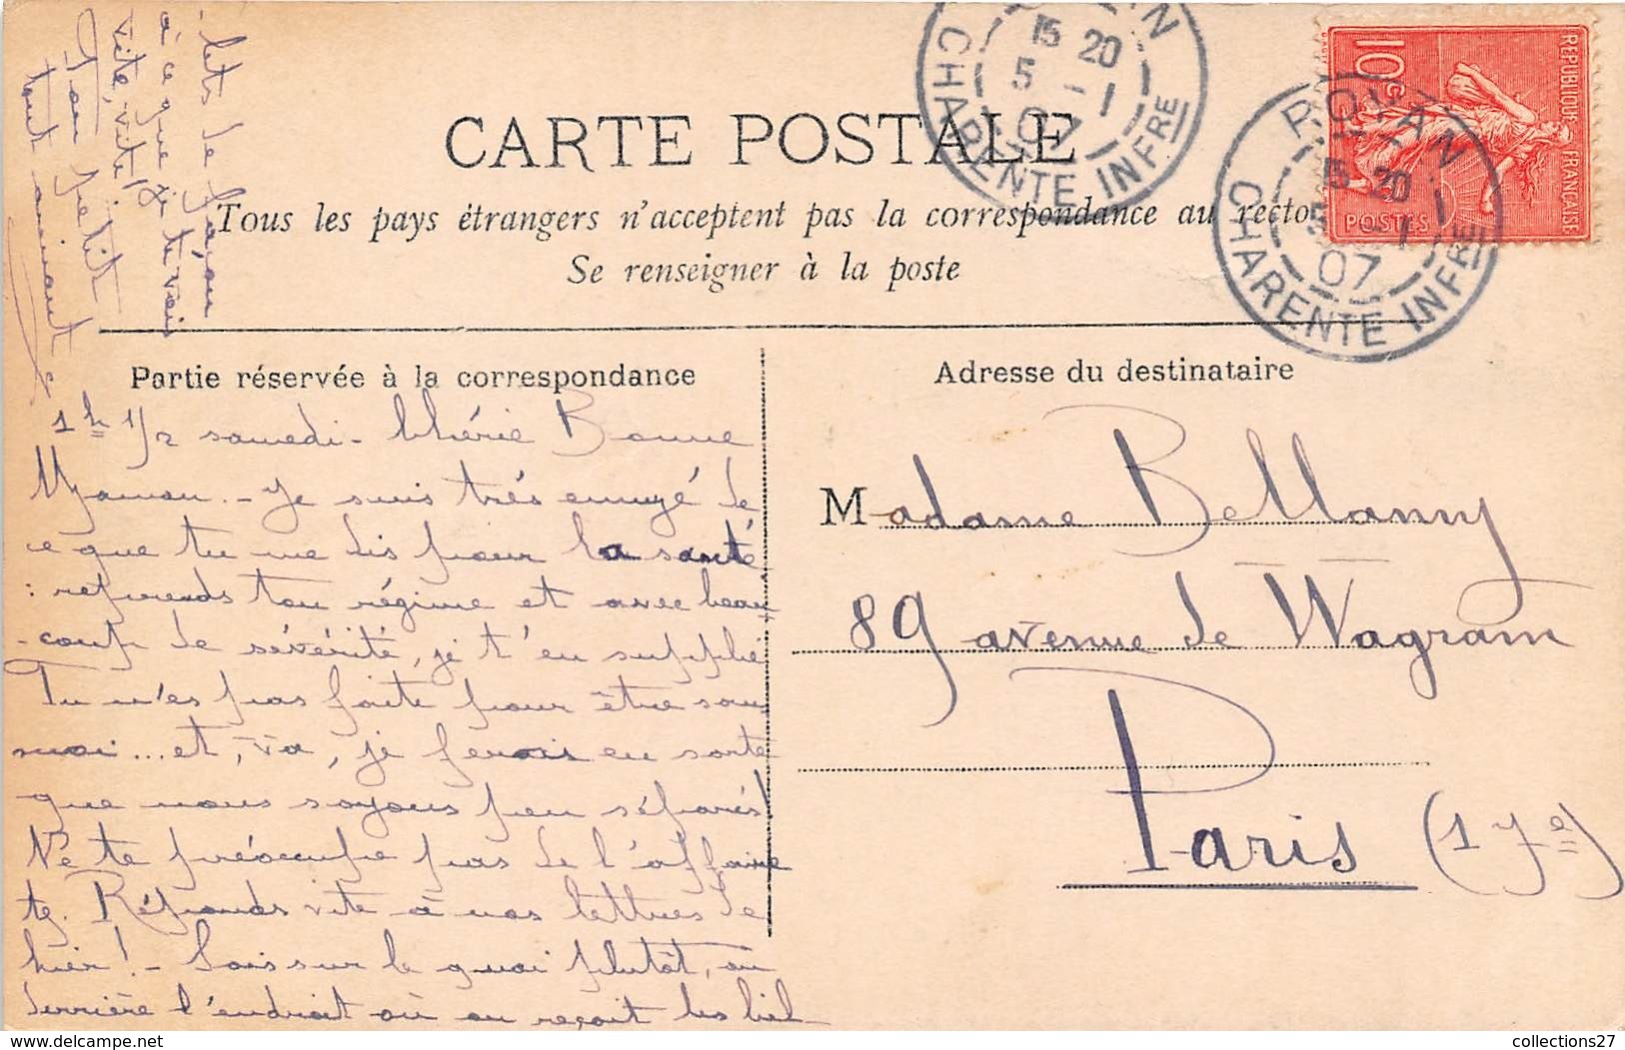 CARTE POSTALE
Tous les pays étrangers n'acceptent pas la correspondance au recto
Se renseigner à la poste
Partie réservée à la correspondance
1h 1/2 samedi - Chérie Bonne
Maman. - Je suis très ennuyé de
ce que tu me dis pour la santé
: reprends ton régime et avec beau
-coup de sévérité, je t'en supplie
Tu n'es pas faite pour être sans
moi... et, va, je ferais en sorte
que nous soyons peu séparés!
Ne te préoccupe pas de l'affaire
Réponds vite à nos lettres de
hier! - Sois sur le quai plutôt, ou
derrière l'endroit où on reçoit les bil-
-lets de façon
à ce que je te vois
vite, vite!
Ton petit
tout aimant
Adresse du destinataire
Madame Bellamy
89 avenue de Wagram
Paris (17e)
ROYAN
15 20
5 - 1
07
CHARENTE INFRE
ROYAN
15 20
5 - 1
07
CHARENTE INFRE
10c
REPUBLIQUE FRANÇAISE
POSTES
collections27